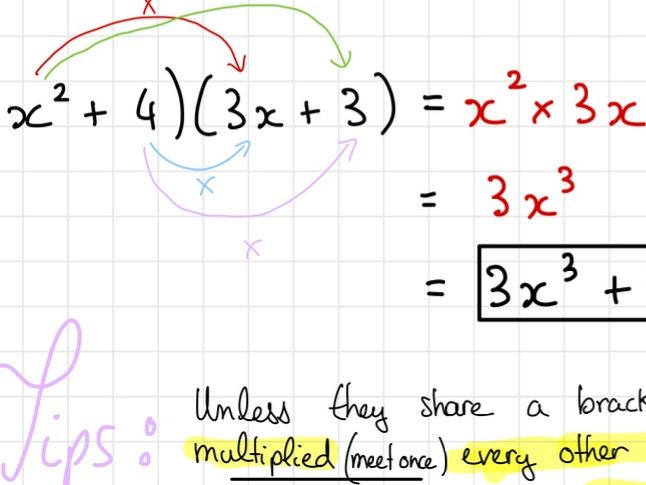 x
x² + 4)(3x + 3) = x² × 3x
x
= 3x³
x
= 3x³ +
Tips:
Unless they share a brack
multiplied (meet once) every other